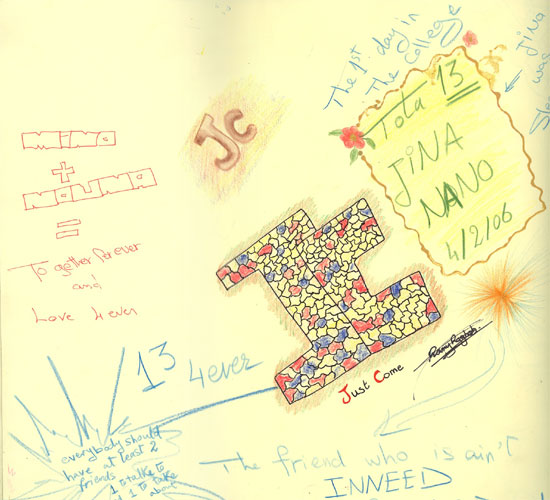 The 1st day in
The College
JiNA
was
Tota 13
JiNA
NANO
4/2/06
Jc
MiNO
+
NAUNA
=
Together forever
and
Love 4ever
13 4ever
Just Come
everybody should
have at least 2
friends
1 to talk to
& 1 to talk
about
The friend who is ain't
INNEED